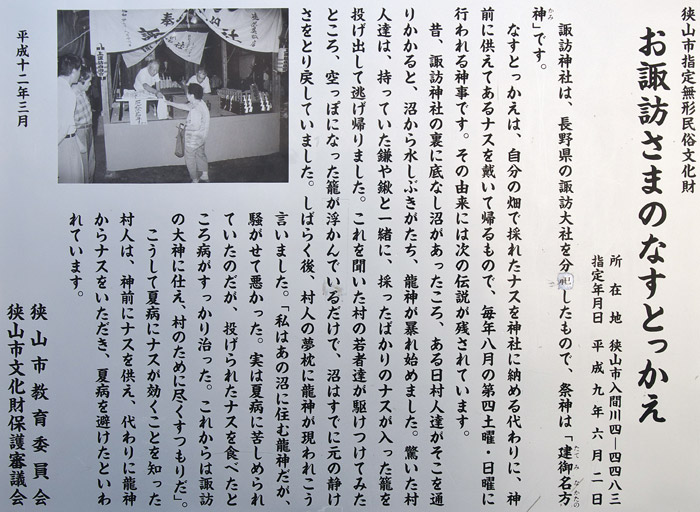 狭山市指定無形民俗文化財
お諏訪さまのなすとっかえ
所在地 狭山市入間川四―四四八三
指定年月日 平成九年六月二日
諏訪神社は、長野県の諏訪大社を分祀したもので、祭神は「建御名方
神」です。
なすとっかえは、自分の畑で採れたナスを神社に納める代わりに、神
前に供えてあるナスを戴いて帰るもので、毎年八月の第四土曜・日曜に
行われる神事です。その由来には次の伝説が残されています。
昔、諏訪神社の裏に底なし沼があったころ、ある日村人達がそこを通
りかかると、沼から水しぶきがたち、龍神が暴れ始めました。驚いた村
人達は、持っていた鎌や鍬と一緒に、採ったばかりのナスが入った籠を
投げ出して逃げ帰りました。これを聞いた村の若者達が駆けつけてみた
ところ、空っぽになった籠が浮かんでいるだけで、沼はすでに元の静け
さをとり戻していました。しばらく後、村人の夢枕に龍神が現われこう
言いました。「私はあの沼に住む龍神だが、
騒がせて悪かった。実は夏病に苦しめられ
ていたのだが、投げられたナスを食べたと
ころ病がすっかり治った。これからは諏訪
の大神に仕え、村のために尽くすつもりだ」。
こうして夏病にナスが効くことを知った
村人は、神前にナスを供え、代わりに龍神
からナスをいただき、夏病を避けたといわ
れています。
平成十二年三月
狭山市教育委員会
狭山市文化財保護審議会